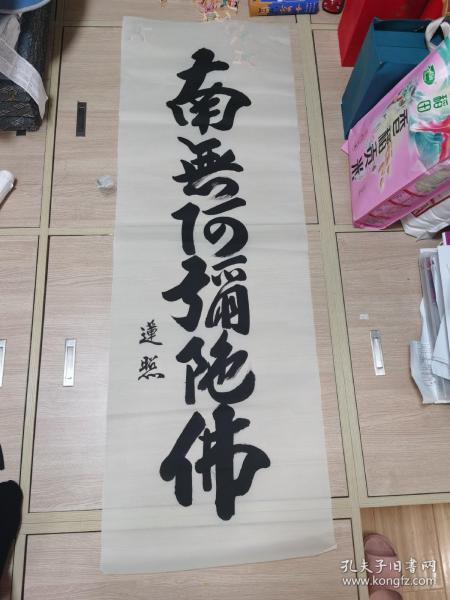 南無阿彌陀佛
蓮照
稻田
香稻貢米
孔夫子旧书网
www.kongfz.com